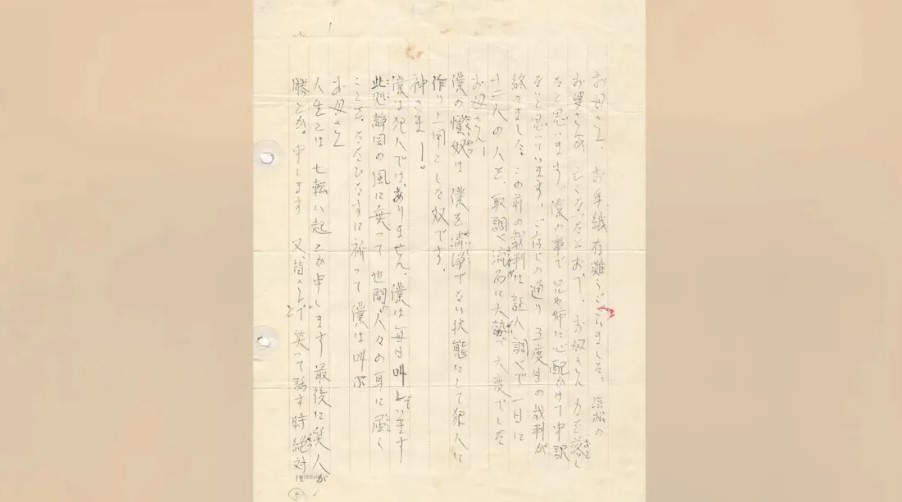 お母さん、お手紙有難うございました。浜松の
お婆さんが亡くなったとおで、お母さん力を落し
たと思います。僕の事で兄や姉に心配かけて申訳
ないと思っています。の通り3度目の裁判が
終りました。この前の裁判は証人調べで一日に
十二人の人を、取調べ流石に大勢で大変でした
お母さん!
僕の憎奴は、僕を清浄でない状態にして犯人に
作り上用とした奴です。
神さまー。
僕は犯人ではありません。僕は毎日叫んでいます
此処静岡の風に乗って世間の人々の耳に届く
ことを、ただひたすらに祈って僕は叫ぶ
お母さん
人生とは七転八起とか申します 最後に笑う人が
勝とか申します 又、皆さんで笑って話す時絶対